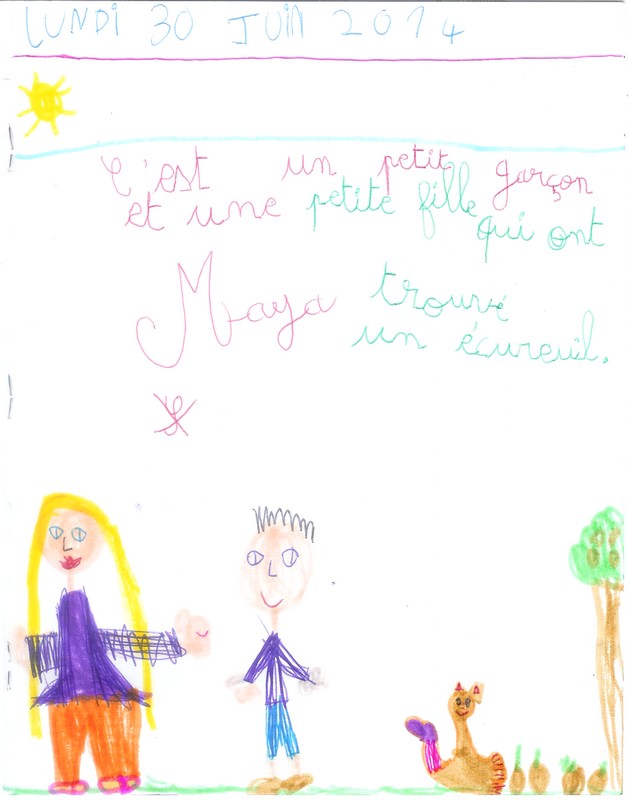 LUNDI 30 JUIN 2014
C'est un petit garçon
et une petite fille
qui ont
Maya trouvé
un écureuil.